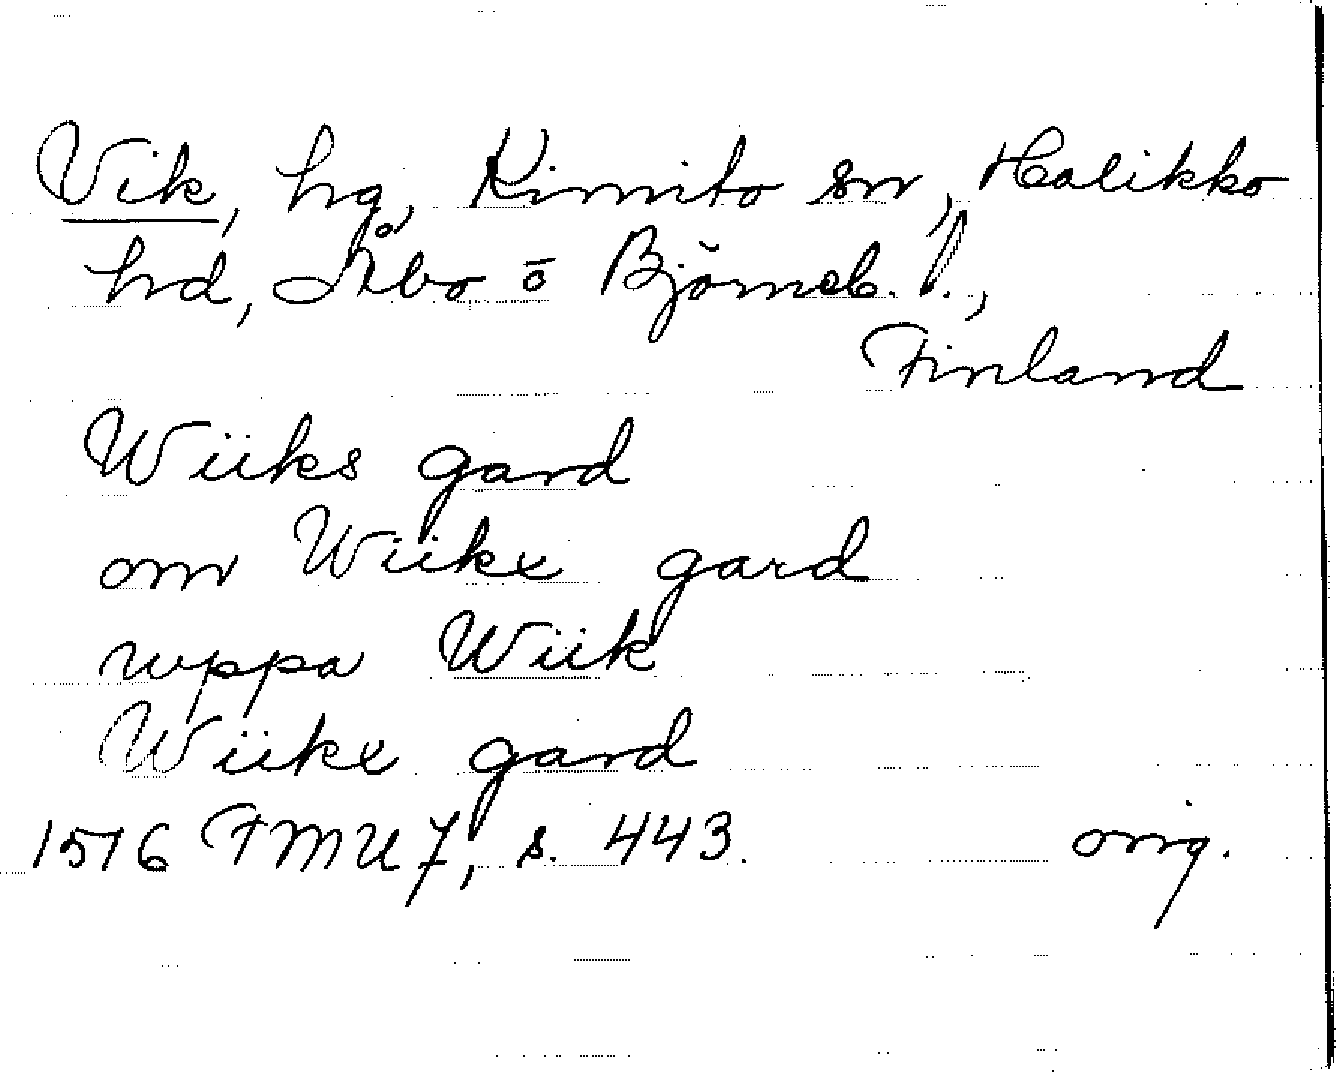 Vik, hg, Kimito sn, Halikko
hd, Åbo o Björneb. l.,
Finland
Wiiks gard
om Wiikx gard
uppa Wiik
Wiikx gard
1516 FMU 7, s. 443. orig.